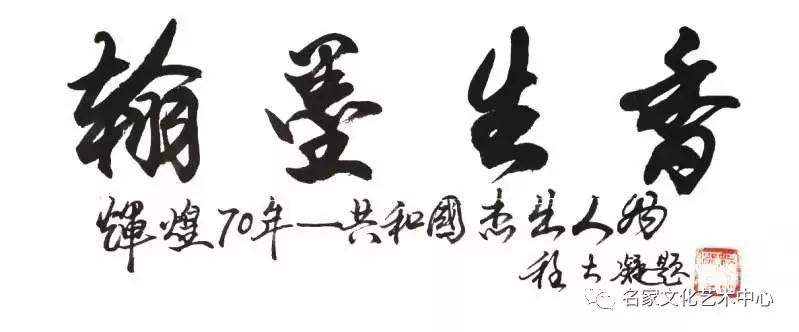 翰墨生香
輝煌70年一共和國杰出人物
程大凝題
名家文化艺术中心